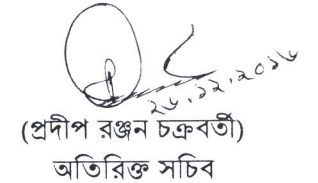 ২৬.১২.২০১৬
(প্রদীপ রঞ্জন চক্রবর্তী)
অতিরিক্ত সচিব